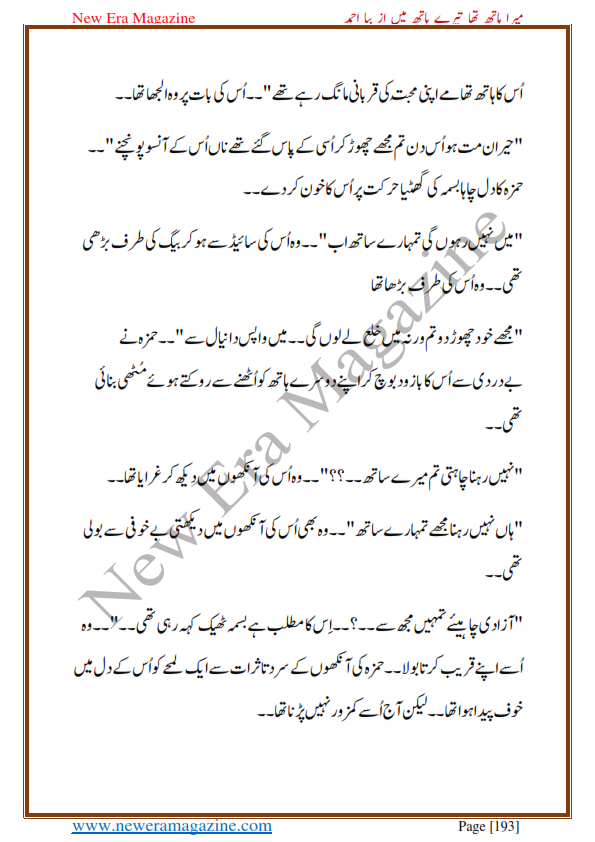 New Era Magazine
میرا ہاتھ تھا تیرے ہاتھ میں از بیا احمد
اُس کا ہاتھ تھامے اپنی محبت کی قربانی مانگ رہے تھے"۔۔اُس کی بات پر وہ الجھا تھا۔۔
"حیران مت ہو اُس دن تم مجھے چھوڑ کر اُسی کے پاس گئے تھے ناں اُس کے آنسو پونچنے"۔۔
حمزہ کا دل چاہا بسمہ کی گھٹیا حرکت پر اُس کا خون کر دے۔۔
"میں نہیں رہوں گی تمہارے ساتھ اب"۔۔وہ اُس کی سائیڈ سے ہو کر بیگ کی طرف بڑھی
تھی۔۔وہ اُس کی طرف بڑھا تھا
"مجھے خود چھوڑ دو تم ورنہ میں خلع لے لوں گی۔۔میں واپس دانیال سے"۔۔حمزہ نے
بے دردی سے اُس کا بازو دبوچ کر اپنے دوسرے ہاتھ کو اُٹھنے سے روکتے ہوئے مُٹھی بنائی
تھی۔۔
"نہیں رہنا چاہتی تم میرے ساتھ۔۔؟؟"۔۔وہ اُس کی آنکھوں میں دیکھ کر غرایا تھا۔۔
"ہاں نہیں رہنا مجھے تمہارے ساتھ"۔۔وہ بھی اُس کی آنکھوں میں دیکھتی بے خوفی سے بولی
تھی۔۔
"آزادی چاہیئے تمہیں مجھ سے۔۔؟۔۔اِس کا مطلب ہے بسمہ ٹھیک کہہ رہی تھی۔۔"۔۔وہ
اُسے اپنے قریب کرتا بولا۔۔حمزہ کی آنکھوں کے سرد تاثرات سے ایک لمحے کو اُس کے دل میں
خوف پیدا ہوا تھا۔۔لیکن آج اُسے کمزور نہیں پڑنا تھا۔۔
New Era Magazine
www.neweramagazine.com
Page [193]